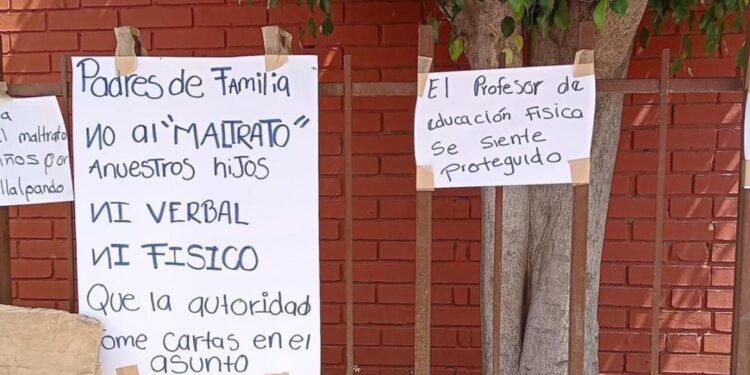 a
l maltrato
iños por
llalpando
Padres de Familia
NO al "MALTRATO"
Anuestros hijos
NI VERBAL
NI FISICO
Que la autoridad
ome cartas en el
asunto
El Profesor de
educación Fisica
Se Siente
Proteguido